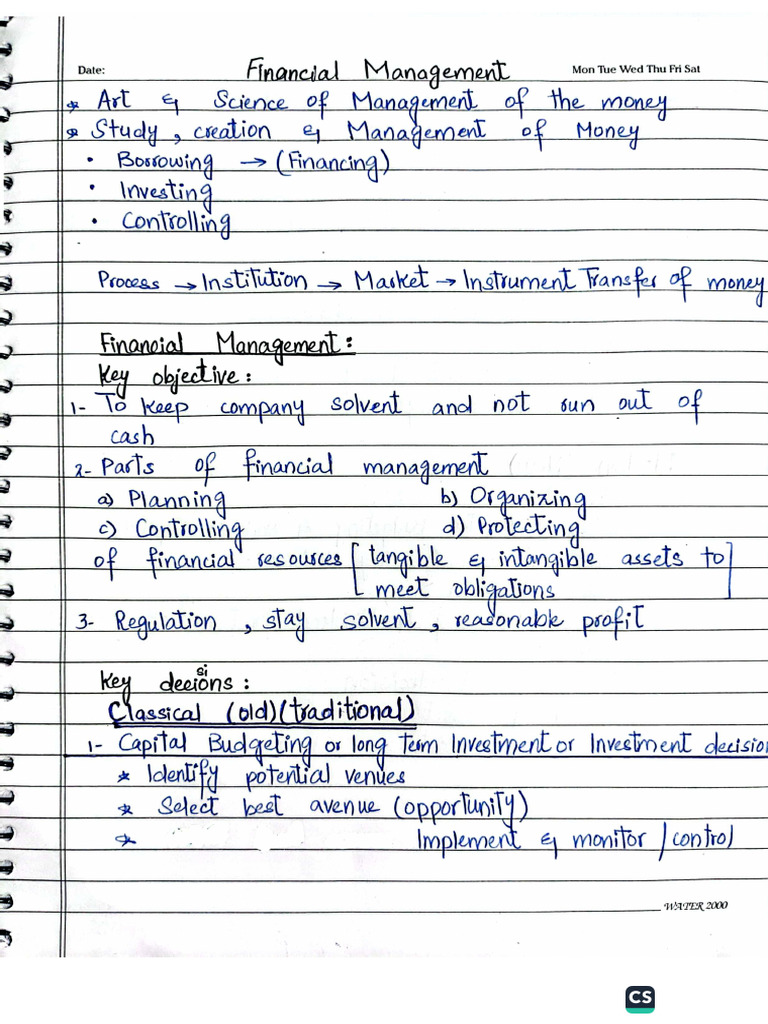 Date: Financial Management Mon Tue Wed Thu Fri Sat
* Art & Science of Management of the money
* Study, creation & Management of Money
• Borrowing → (Financing)
• Investing
• Controlling
Process → Institution → Market → Instrument Transfer of money
Financial Management:
Key objective:
1- To keep company solvent and not run out of
cash
2- Parts of financial management
a) Planning b) Organizing
c) Controlling d) Protecting
of financial resources [tangible & intangible assets to
meet obligations]
3- Regulation, stay solvent, reasonable profit
Key decisions:
Classical (old) (traditional)
1- Capital Budgeting or long Term Investment or Investment decision
* Identify potential venues
* Select best avenue (opportunity)
* Implement & monitor / control
WATER 2000
CS